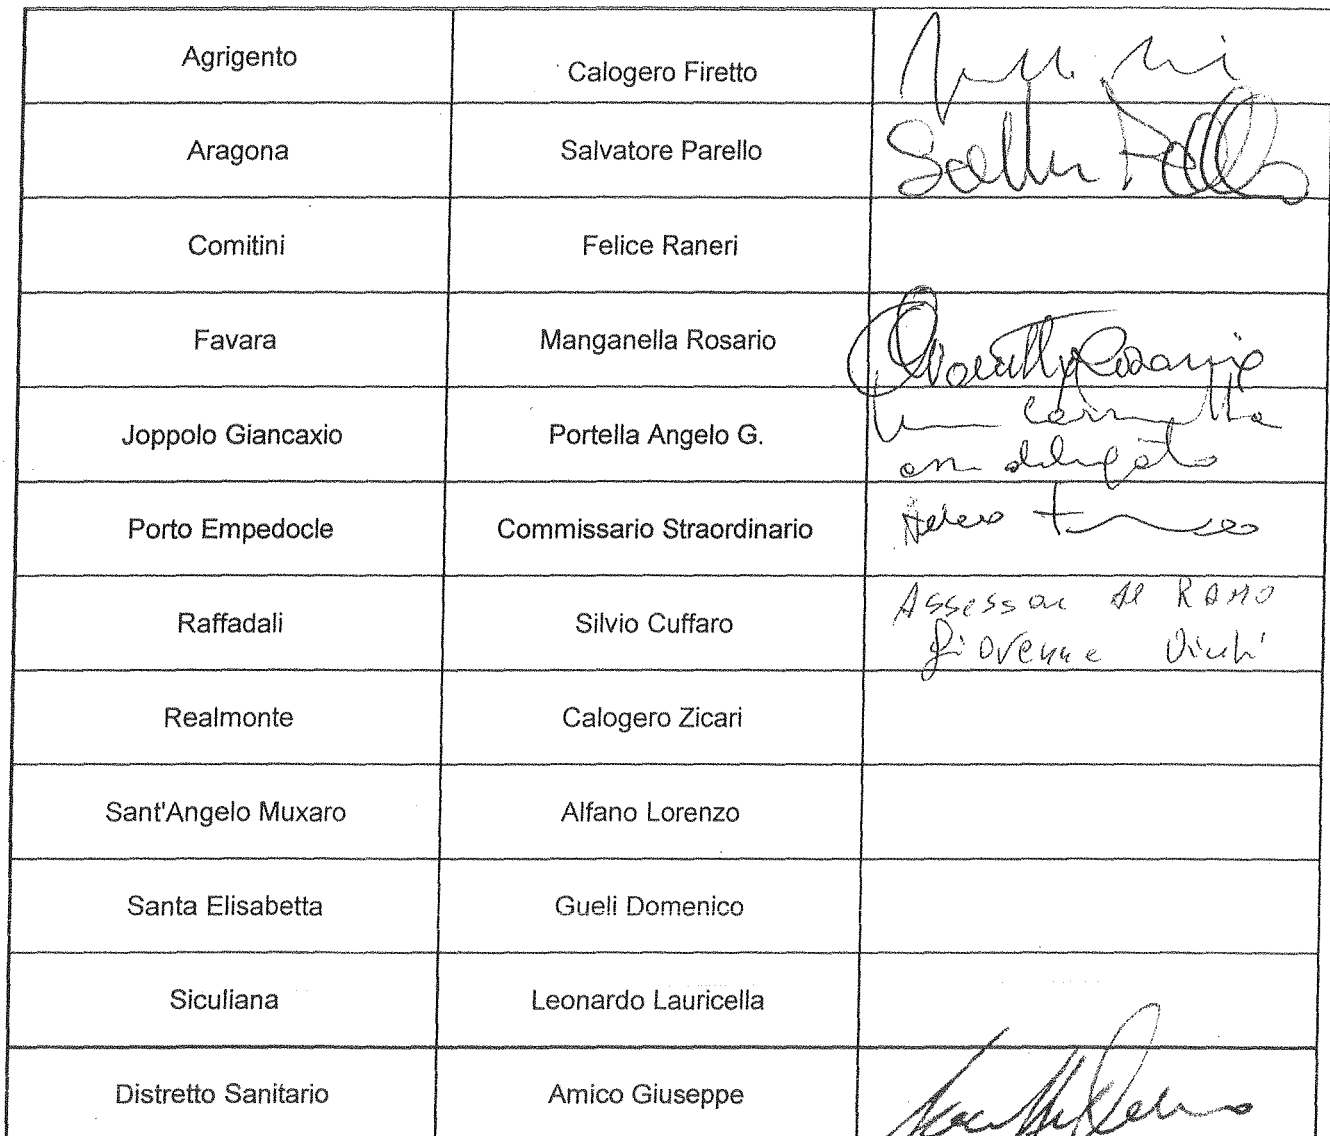 Agrigento Calogero Firetto
Aragona Salvatore Parello
Comitini Felice Raneri
Favara Manganella Rosario
Joppolo Giancaxio Portella Angelo G.
delegato
Porto Empedocle Commissario Straordinario
Raffadali Silvio Cuffaro Assessore al RAMO
Giovanne
Realmonte Calogero Zicari
Sant'Angelo Muxaro Alfano Lorenzo
Santa Elisabetta Gueli Domenico
Siculiana Leonardo Lauricella
Distretto Sanitario Amico Giuseppe